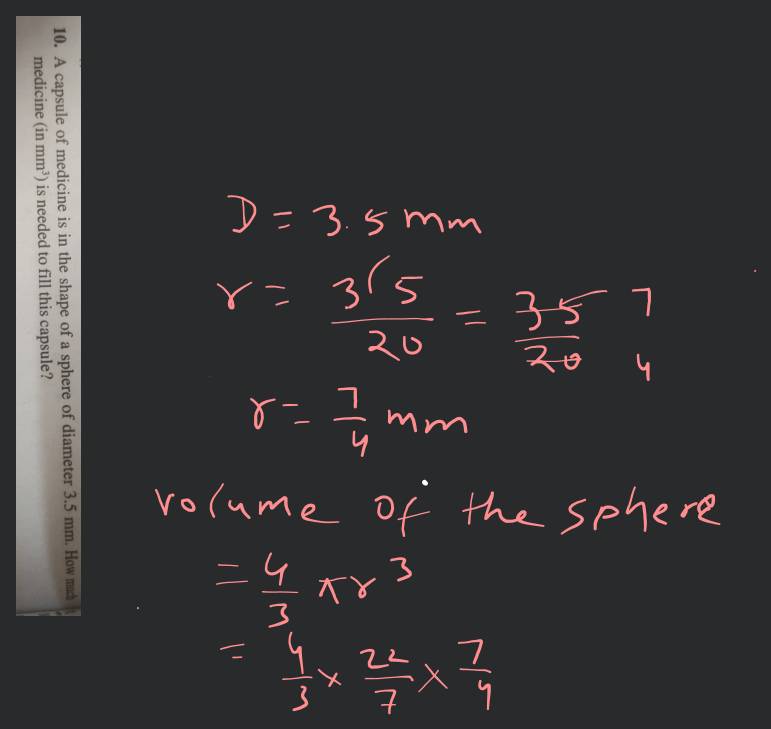 10. A capsule of medicine is in the shape of a sphere of diameter 3.5 mm. How much
medicine (in mm³) is needed to fill this capsule?
D = 3.5 mm
r = 3(5/20 = 35/20 7/4
r = 7/4 mm
volume of the sphere
= 4/3 πr³
= 4/3 × 22/7 × 7/4